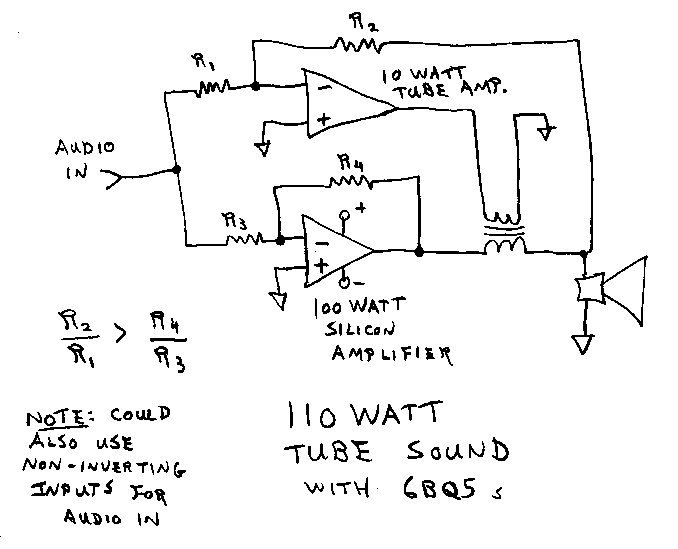 R2
R1
10 WATT
TUBE AMP.
-
+
AUDIO
IN
R4
R3
+
-
+
-
100 WATT
SILICON
AMPLIFIER
R2/R1 > R4/R3
NOTE: COULD
ALSO USE
NON-INVERTING
INPUTS FOR
AUDIO IN
110 WATT
TUBE SOUND
WITH 6BQ5s